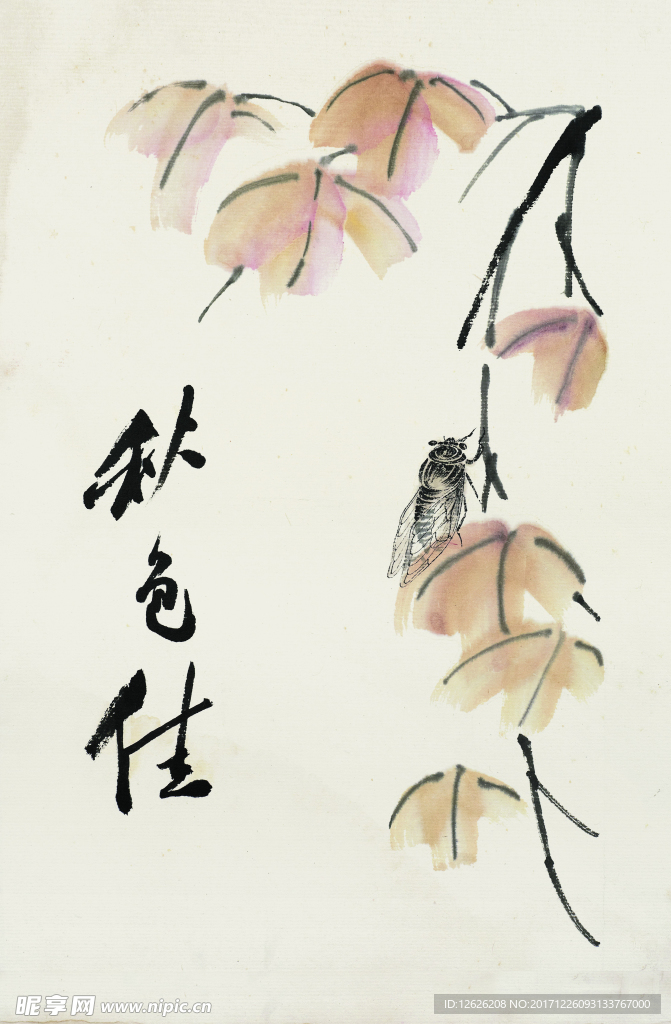 秋色佳
昵享网 www.nipic.cn
ID:12626208 NO:20171226093133767000